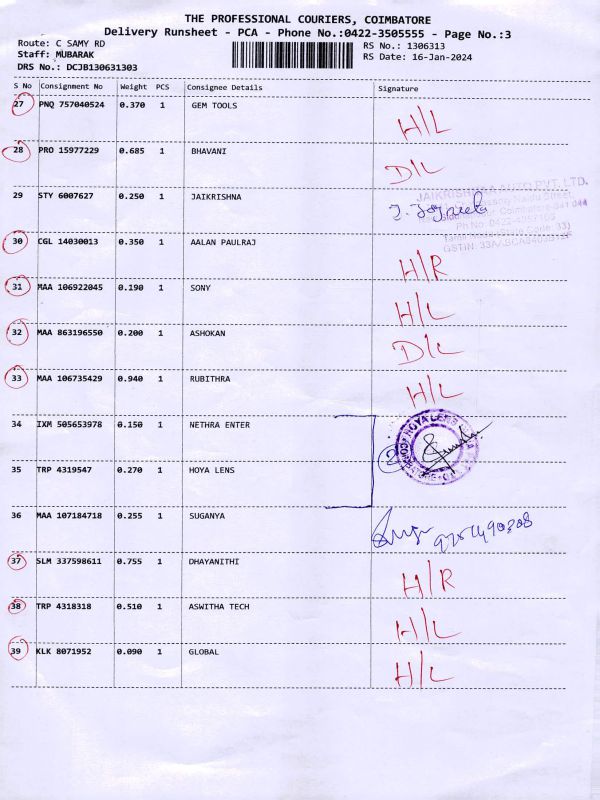 THE PROFESSIONAL COURIERS, COIMBATORE
Delivery Runsheet - PCA - Phone No.:0422-3505555 - Page No.:3
Route: C SAMY RD RS No.: 1306313
Staff: MUBARAK RS Date: 16-Jan-2024
DRS No.: DCJB130631303
S No Consignment No Weight PCS Consignee Details Signature
27 PNQ 757040524 0.370 1 GEM TOOLS H/L
28 PRO 15977229 0.685 1 BHAVANI D/L
29 STY 6007627 0.250 1 JAIKRISHNA
JAIKRISHNAA AUTO PVT. LTD.
30 CGL 14030013 0.350 1 AALAN PAULRAJ H/R
31 MAA 106922045 0.190 1 SONY H/L
32 MAA 863196550 0.200 1 ASHOKAN D/L
33 MAA 106735429 0.940 1 RUBITHRA H/L
34 IXM 505653978 0.150 1 NETHRA ENTER
HOYA LENS
2
35 TRP 4319547 0.270 1 HOYA LENS
36 MAA 107184718 0.255 1 SUGANYA
37 SLM 337598611 0.755 1 DHAYANITHI H/R
38 TRP 4318318 0.510 1 ASWITHA TECH H/L
39 KLK 8071952 0.090 1 GLOBAL H/L